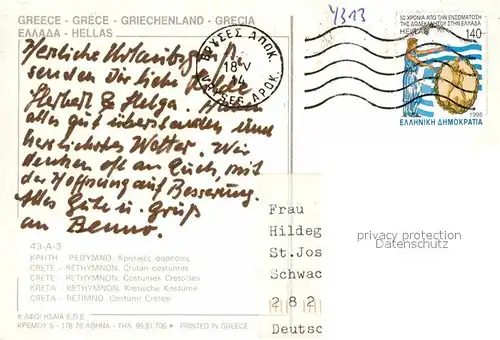 GREECE - GRÈCE - GRIECHENLAND - GRECIA
ΕΛΛΑΔΑ - HELLAS
4313
ΒΡΥΣΕΣ ΑΠΟΚ.
18 V
14
VRYSES APOK.
50 ΧΡΟΝΙΑ ΑΠΟ ΤΗΝ ΕΝΣΩΜΑΤΩΣΗ
ΤΗΣ ΔΩΔΕΚΑΝΗΣΟΥ ΣΤΗΝ ΕΛΛΑΔΑ
HELLAS 140
1998
ΕΛΛΗΝΙΚΗ ΔΗΜΟΚΡΑΤΙΑ
Herzliche
senden Dir liebe
Herbert & Helga.
alles gut überstanden und
herrlichstes Wetter. Wir
denken oft an Euch, mit
der Hoffnung auf Besserung.
Alles Gute u. Gruß
an Benno.
43-A-3
ΚΡΗΤΗ - ΡΕΘΥΜΝΟ. Κρητικές φορεσιές
CRETE - RETHYMNON. Cretan costumes
CRÈTE - RETHYMNON. Costumes Crétoises
KRETA - RETHYMNON. Kretische Kostüme
CRETA - RETIMNO. Costumi Cretesi
© ΑΦΟΙ ΗΣΑΪΑ Ε.Π.Ε.
ΚΡΕΜΟΥ 5 - 176 76 ΑΘΗΝΑ - ΤΗΛ. 95.81.706 PRINTED IN GREECE
Frau
Hildeg
St.Jos
Schwac
2 8 2
Deutsc
privacy protection
Datenschutz